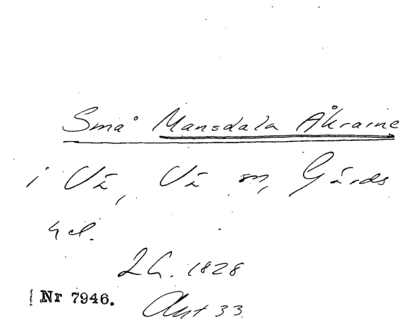 Små Mansdala Åkrarne
i Vä, Vä sn, Gärds
hd.
LG. 1828
Nr 7946. Akt 33